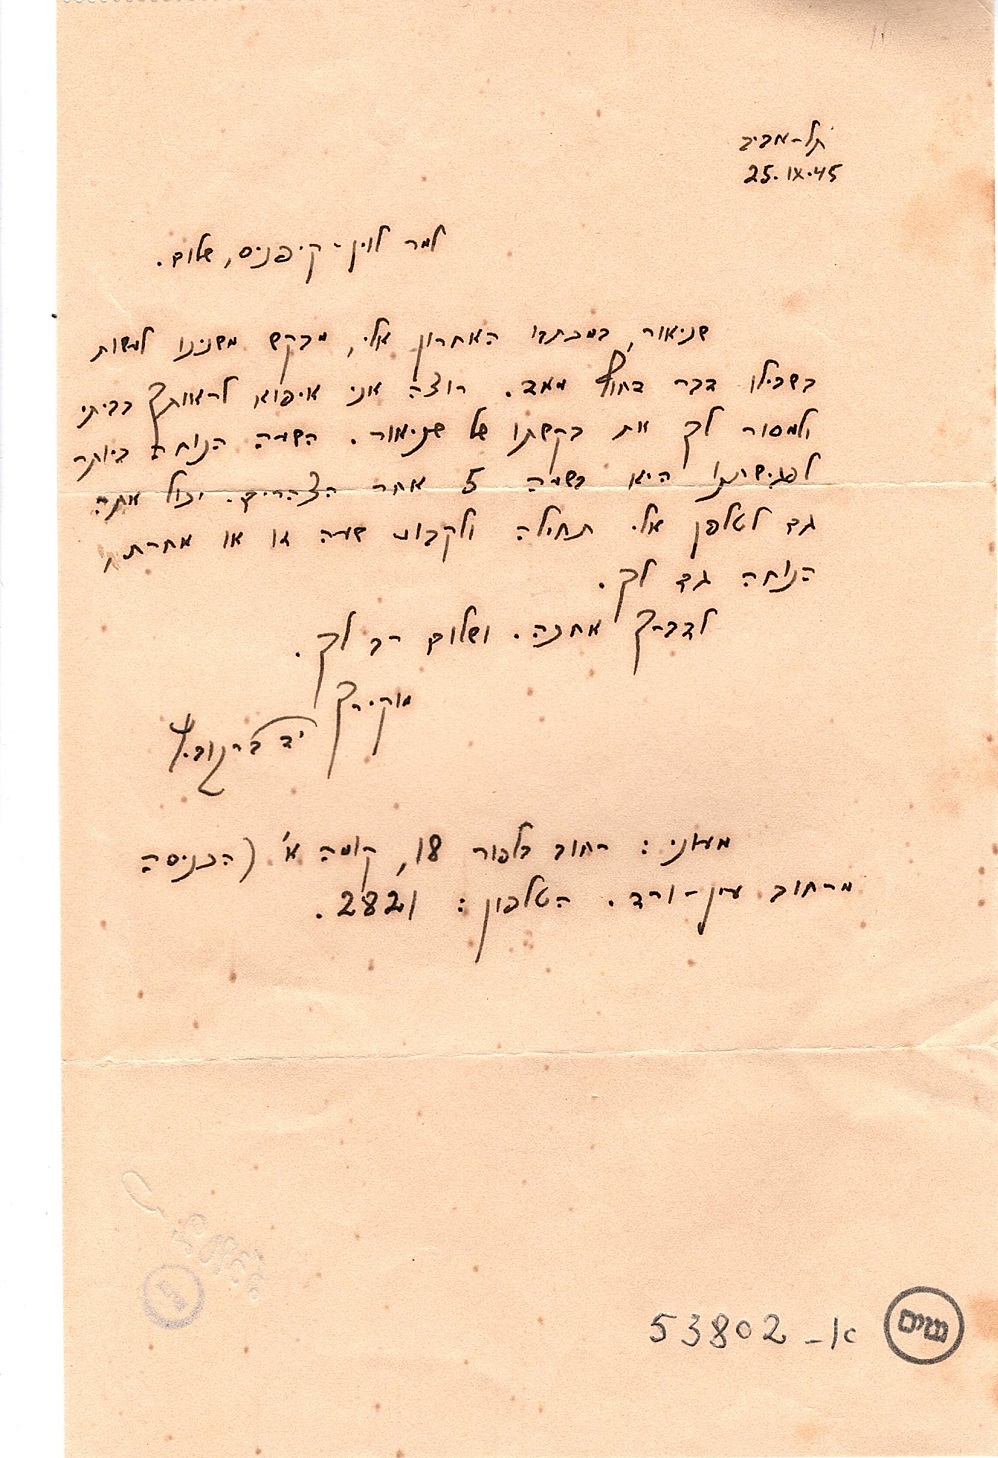 תל-אביב
25.IX.45
למר לוין-קיפניס, שלום.
שניאור, במכתבו האחרון אלי, מבקש משנינו לעשות
בשבילו דבר דחוף מאד. רוצה אני איפוא לראותך בביתי
ולמסור לך את בקשתו של שניאור. השעה הנוחה ביותר
לפגישתנו היא בשעה 5 אחר הצהרים. יכול אתה
גם לטלפן אלי תחילה ולקבוע שעה זו או אחרת,
הנוחה גם לך.
לדברך אחכה. ושלום רב לך.
מוקירך
יד ברקוביץ
מעוני: רחוב בלפור 18, קומה א' (הכניסה
מרחוב עין-ורד. הטלפון: 2821.
53802 - א